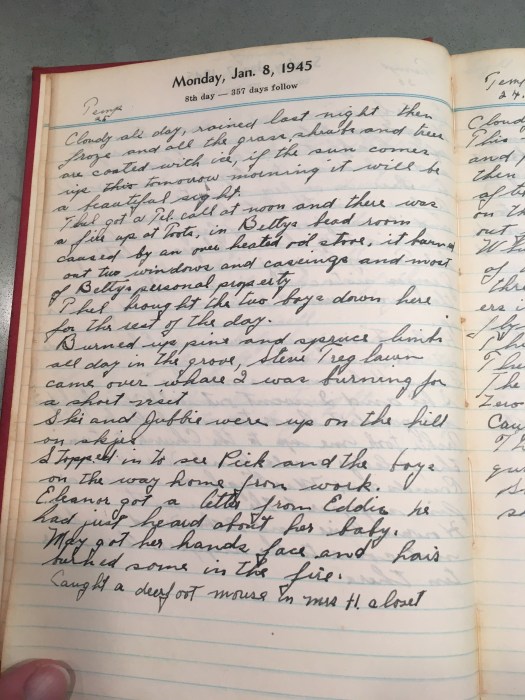 Monday, Jan. 8, 1945
8th day — 357 days follow
Temp
Cloudy all day, rained last night then
froze and all the grass, shrubs and trees
are coated with ice, if the sun comes
up this tomorrow morning it will be
a beautiful sight.
Phel got a Tel call at noon and there was
a fire up at Toots, in Bettys bead room
caused by an over heated oil stove, it burned
out two windows and caseings and most
of Bettys personal property
Phel brought the two boys down here
for the rest of the day.
Burned up pine and spruce limbs
all day in the grove, Steve Treglawn
came over whare I was burning for
a short visit
Ski and Jubbie were up on the hill
on skjes
Stopped in to see Pick and the boys
on the way home from work.
Eleanor got a letter from Eddie he
had just heard about her baby.
May got her hands, face and hair
burned some in the fire.
Caught a deerfoot mouse in Mrs H. closet
Temp
24
Cloud
This
and
then
of te
on t
out
of
thr
ers
The
Zero
Cau
of